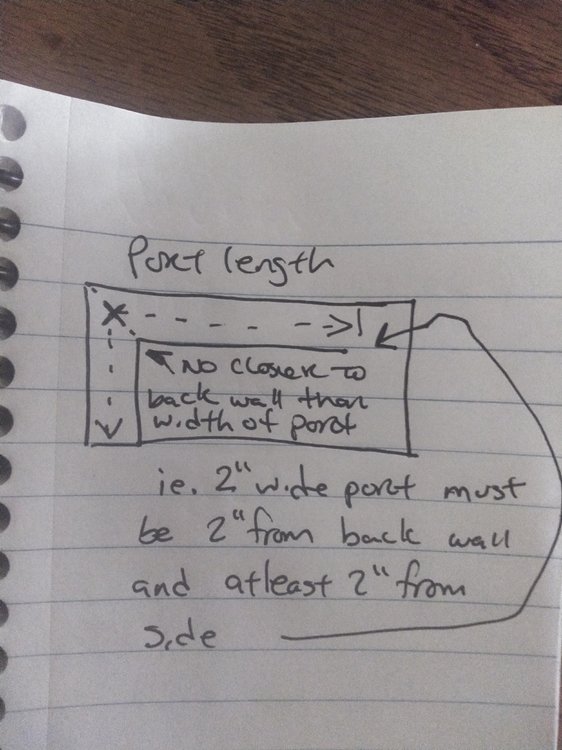 Port length
No closer to
back wall than
width of port
ie. 2" wide port must
be 2" from back wall
and atleast 2" from
side